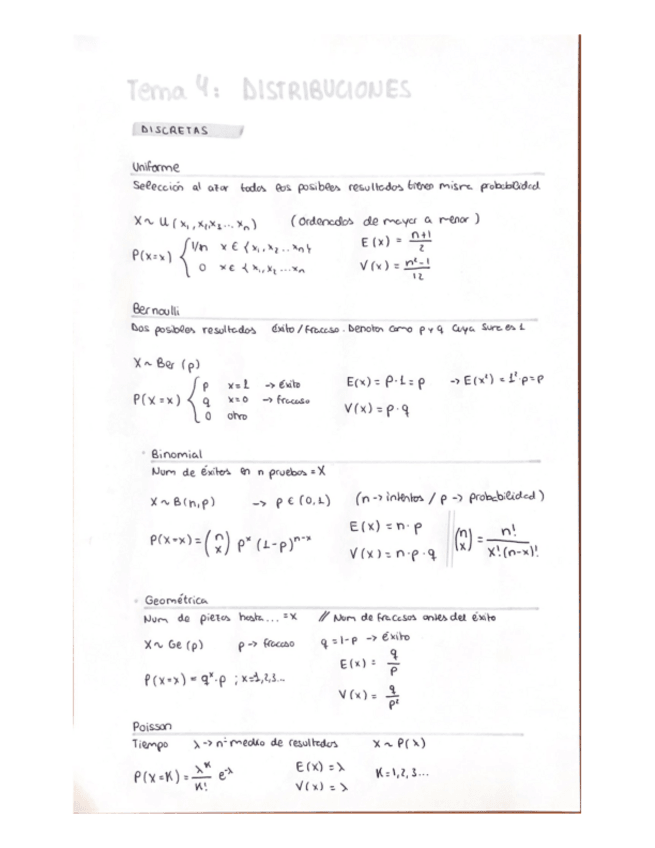 Tema 4: DISTRIBUCIONES
DISCRETAS
Uniforme
Selección al azar todos los posibles resultados tienen misma probabilidad
X ~ U (x₁, x₁, x₂ ... xₙ) (Ordenados de mayor a menor)
P(x=x) { 1/n x ∈ {x₁, x₂ ... xₙ} E(x) = n+1/2
0 x ∈ {x₁, x₂ ... xₙ V(x) = n²-1/12
Bernoulli
Dos posibles resultados éxito/fracaso. Denotan como p y q cuya suma es 1
X ~ Ber (p)
P(X=x) { p x=1 -> éxito E(x) = p·1 = p -> E(x²) = 1²·p = p
q x=0 -> fracaso
0 otro V(x) = p·q
Binomial
Num de éxitos en n pruebas = X
X ~ B(n,p) -> p ∈ (0,1) (n -> intentos / p -> probabilidad)
P(X=x) = (n x) pˣ (1-p)ⁿ⁻ˣ E(x) = n·p (n x) = n!/x!(n-x)!
V(x) = n·p·q
Geométrica
Num de piezas hasta... = x // Num de fracasos antes del éxito
X ~ Ge (p) p -> fracaso q = 1-p -> éxito
E(x) = q/p
P(x=x) = qˣ·p ; x=1,2,3...
V(x) = q/p²
Poisson
Tiempo λ -> nº medio de resultados X ~ P(λ)
P(X=K) = λᴷ/K! e^-λ E(x) = λ K=1,2,3...
V(x) = λ